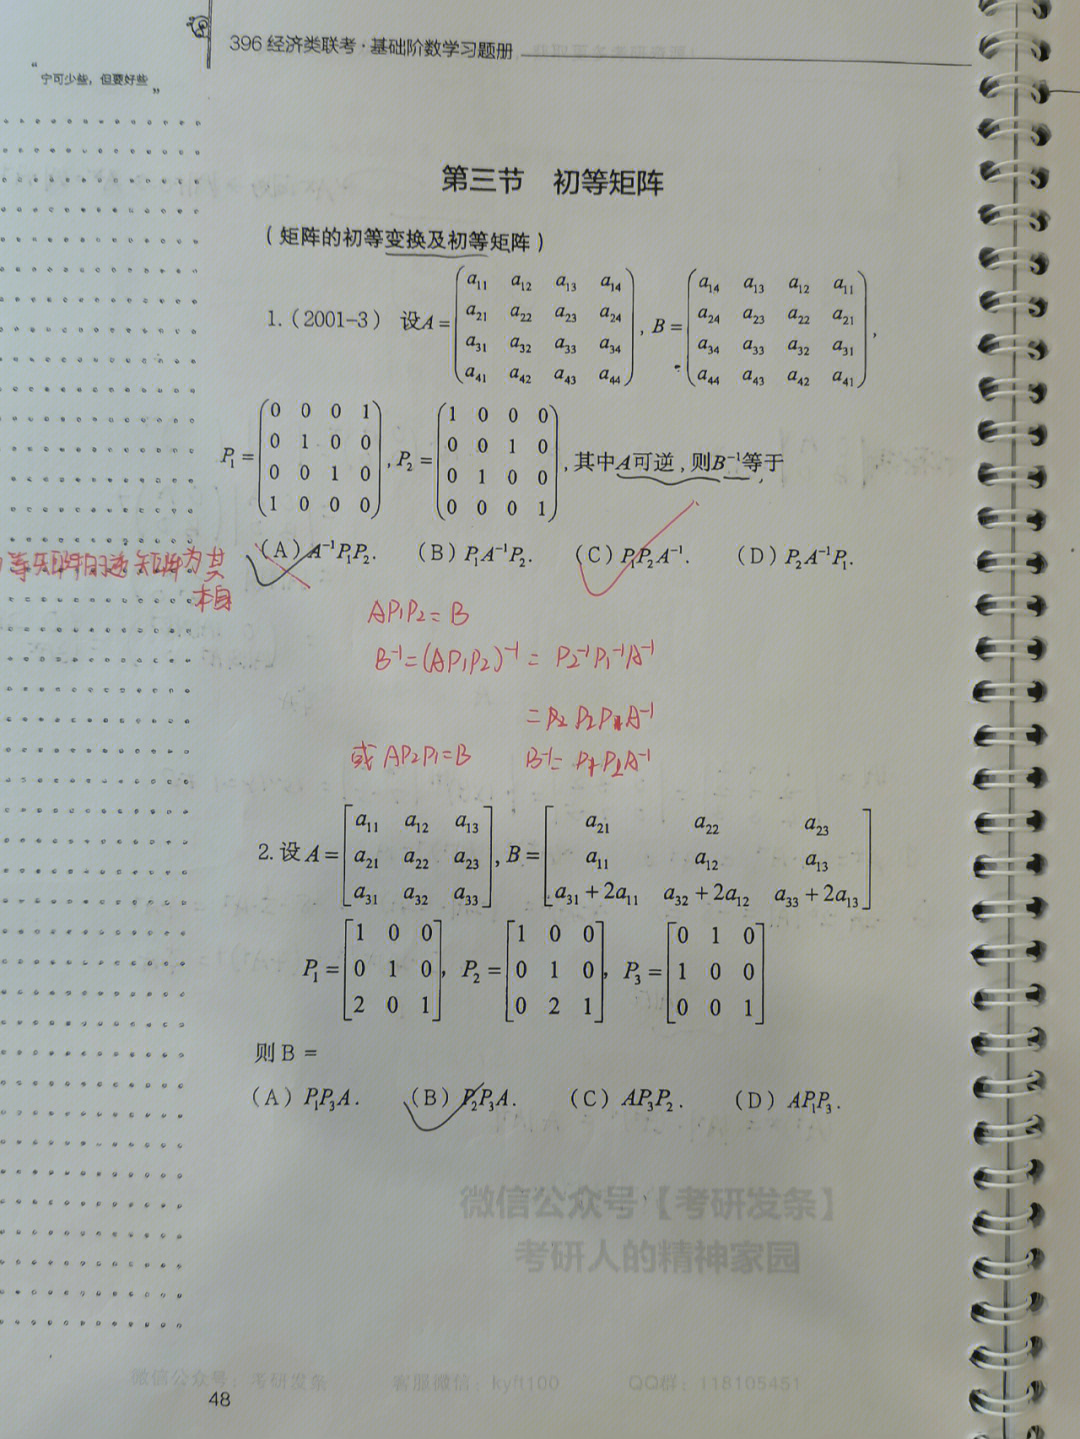 396 经济类联考·基础阶数学习题册
“宁可少些，但要好些”
第三节 初等矩阵
（矩阵的初等变换及初等矩阵）
1.（2001-3） 设A=
a11 a12 a13 a14
a21 a22 a23 a24
a31 a32 a33 a34
a41 a42 a43 a44
, B=
a14 a13 a12 a11
a24 a23 a22 a21
a34 a33 a32 a31
a44 a43 a42 a41
,
P1=
0 0 0 1
0 1 0 0
0 0 1 0
1 0 0 0
, P2=
1 0 0 0
0 0 1 0
0 1 0 0
0 0 0 1
, 其中A可逆, 则B⁻¹等于
(A) A⁻¹P1P2. (B) P1A⁻¹P2. (C) P1P2A⁻¹. (D) P2A⁻¹P1.
等矩阵的逆矩阵为其
本身
AP1P2=B
B⁻¹=(AP1P2)⁻¹= P2⁻¹P1⁻¹A⁻¹
或 AP2P1=B
2. 设 A=
a11 a12 a13
a21 a22 a23
a31 a32 a33
, B=
a21 a22 a23
a11 a12 a13
a31+2a11 a32+2a12 a33+2a13
P1=
1 0 0
0 1 0
2 0 1
, P2=
1 0 0
0 1 0
0 2 1
, P3=
0 1 0
1 0 0
0 0 1
则 B =
(A) P1P3A. (B) P2P3A. (C) AP3P2. (D) AP1P3.
微信公众号【考研发条】
考研人的精神家园
微信公众号：考研发条 客服微信：kyft100 QQ群：118105451
48